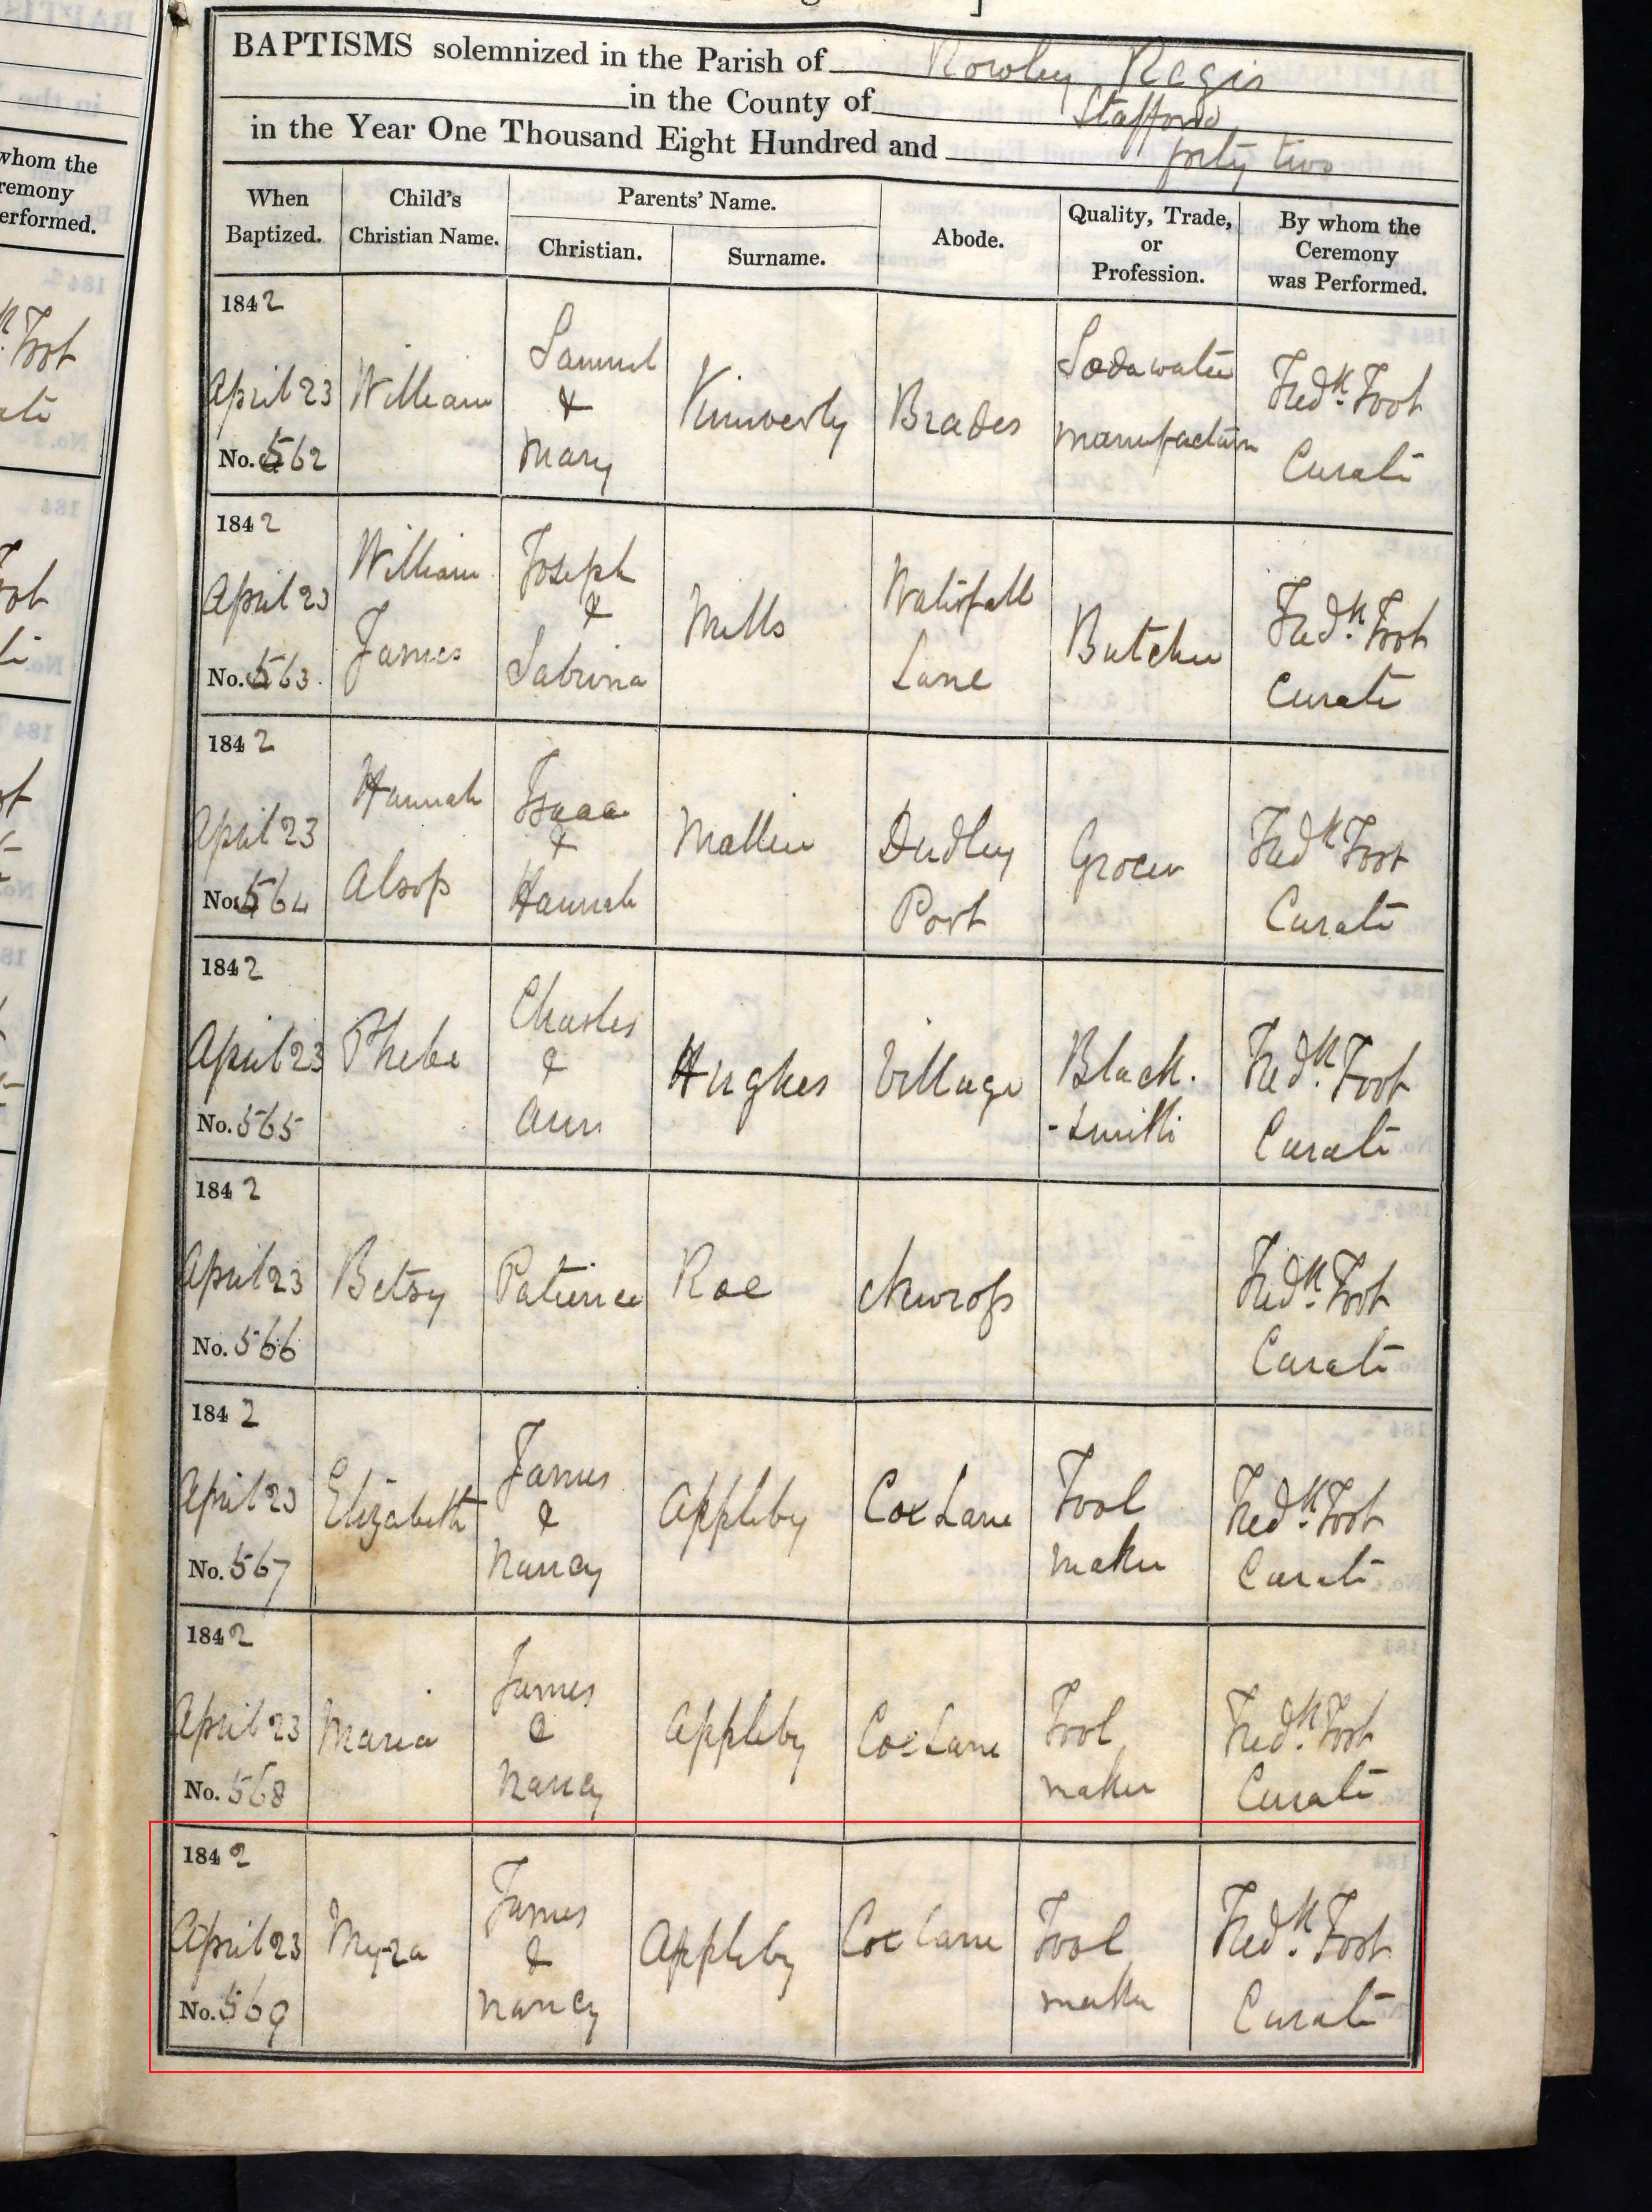 BAPTISMS solemnized in the Parish of Rowley Regis
in the County of Stafford
in the Year One Thousand Eight Hundred and forty two
When Baptized.
Child's Christian Name.
Parents' Name.
Christian.
Surname.
Abode.
Quality, Trade, or Profession.
By whom the Ceremony was Performed.
1842
April 23
No. 562
William
Samuel
&
Mary
Brades
Soda water
manufacturer
Fredk. Foot
Curate
1842
April 23
No. 563
William
James
Joseph
&
Sabrina
Mills
Waterfall
Lane
Butcher
Fredk. Foot
Curate
1842
April 23
No. 564
Hannah
Alsop
Isaac
&
Hannah
Mallin
Dudley
Port
Grocer
Fredk Foot
Curate
1842
April 23
No. 565
Phebe
Charles
&
Ann
Hughes
Village
Black.
-smith
Fredk. Foot
Curate
1842
April 23
No. 566
Betsy
Patience
Roe
Fredk. Foot
Curate
1842
April 23
No. 567
Elizabeth
James
&
Nancy
Appleby
Coe Lane
Tool
maker
Fredk. Foot
Curate
1842
April 23
No. 568
Maria
James
&
Nancy
Appleby
Coe Lane
Tool
maker
Fredk. Foot
Curate
1842
April 23
No. 569
Myra
James
&
Nancy
Appleby
Coe Lane
Tool
maker
Fredk. Foot
Curate
whom the
remony
erformed.